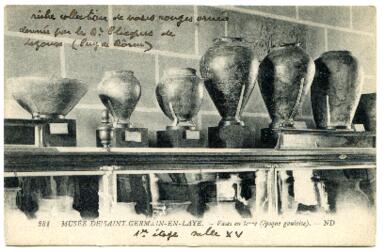 riche collection de vases rouges ornés
donnés par le Dr Plicque de
Lezoux (Puy de Dôme)
281 MUSÉE DE SAINT-GERMAIN-EN-LAYE. - Vases en terre (époque gauloise). - ND
1er étage salle XV